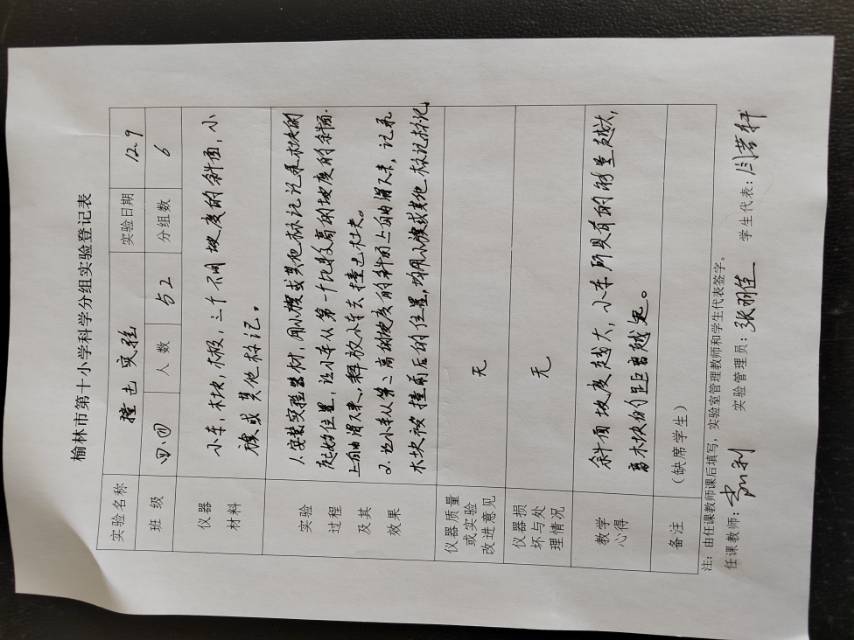 榆林市第十小学科学分组实验登记表
实验名称 撞击实验 实验日期 12.9
班级 四.四 人数 52 分组数 6
仪器材料 小车,木块,木板,三个不同坡度的斜面,小
旗或其他标记。
实验过程及其效果 1.安装实验器材,用小旗或其他标记记录木块的
起始位置,让小车从第一个比较高的坡度的斜面
上自由滑下来,释放小车去撞击木块。
2.让小车从第二高的坡度的斜面上自由滑下来,记录
木块被撞前后的位置,均用小旗或其他标记标记
仪器质量或实验改进意见 无
仪器损坏与处理情况 无
教学心得 斜面坡度越大,小车所具有的能量越大,
离木块的距离越远。
备注 (缺席学生)
注:由任课教师课后填写,实验室管理教师和学生代表签字。
任课教师: 实验管理员:张丽佳 学生代表:闫若轩